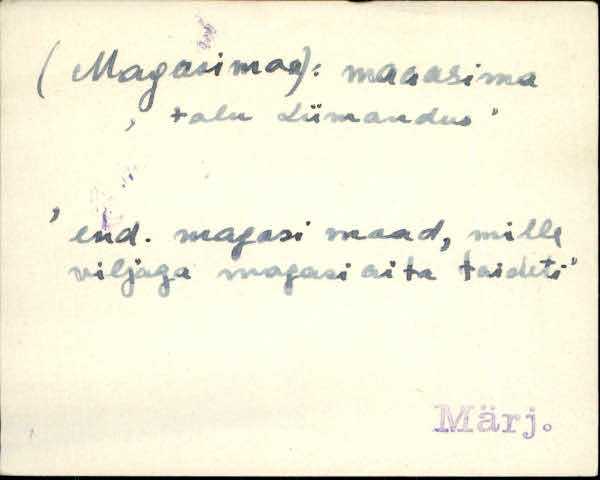 (Magasimaa): maaasima
, talu Liimandus'
'end. magasi maad, mille
viljaga magasi aita täideti'
Märj.